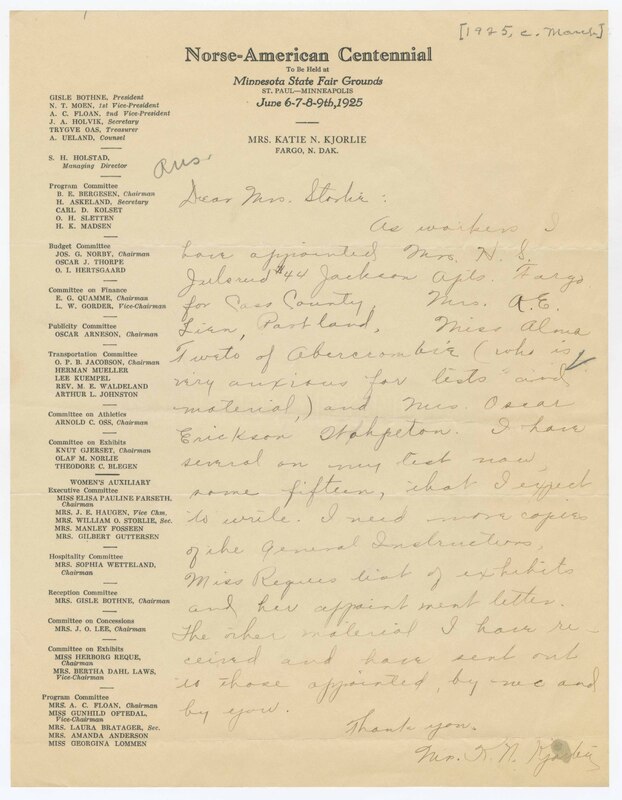 [1925, c. March]
Norse-American Centennial
To Be Held at
Minnesota State Fair Grounds
ST. PAUL—MINNEAPOLIS
June 6-7-8-9th, 1925
MRS. KATIE N. KJORLIE
FARGO, N. DAK.
GISLE BOTHNE, President
N. T. MOEN, 1st Vice-President
A. C. FLOAN, 2nd Vice-President
J. A. HOLVIK, Secretary
TRYGVE OAS, Treasurer
A. UELAND, Counsel
S. H. HOLSTAD,
Managing Director
Program Committee
B. E. BERGESEN, Chairman
H. ASKELAND, Secretary
CARL D. KOLSET
O. H. SLETTEN
H. K. MADSEN
Budget Committee
JOS. G. NORBY, Chairman
OSCAR J. THORPE
O. I. HERTSGAARD
Committee on Finance
E. G. QUAMME, Chairman
L. W. GORDER, Vice-Chairman
Publicity Committee
OSCAR ARNESON, Chairman
Transportation Committee
O. P. B. JACOBSON, Chairman
HERMAN MUELLER
LEE KUEMPEL
REV. M. E. WALDELAND
ARTHUR L. JOHNSTON
Committee on Athletics
ARNOLD C. OSS, Chairman
Committee on Exhibits
KNUT GJERSET, Chairman
OLAF M. NORLIE
THEODORE C. BLEGEN
WOMEN'S AUXILIARY
Executive Committee
MISS ELISA PAULINE FARSETH,
Chairman
MRS. J. E. HAUGEN, Vice Chm.
MRS. WILLIAM O. STORLIE, Sec.
MRS. MANLEY FOSSEEN
MRS. GILBERT GUTTERSEN
Hospitality Committee
MRS. SOPHIA WETTELAND,
Chairman
Reception Committee
MRS. GISLE BOTHNE, Chairman
Committee on Concessions
MRS. J. O. LEE, Chairman
Committee on Exhibits
MISS HERBORG REQUE,
Chairman
MRS. BERTHA DAHL LAWS,
Vice-Chairman
Program Committee
MRS. A. C. FLOAN, Chairman
MISS GUNHILD OFTEDAL,
Vice-Chairman
MRS. LAURA BRATAGER, Sec.
MRS. AMANDA ANDERSON
MISS GEORGINA LOMMEN
Dear Mrs. Storlie:
As workers I
have appointed Mrs. N. G.
Julsrud #44 Jackson Apts. Fargo
for Cass County, Mrs. A. E.
Lien, Portland, Miss Alma
Tweto of Abercrombie (who is
very anxious for lists and
material,) and Mrs. Oscar
Erickson Wahpeton. I have
several on my list now,
some fifteen, that I expect
to write. I need more copies
of the General Instructions,
Miss Reques list of exhibits
and her appointment letter.
The other material I have re-
ceived and have sent out
to those appointed, by me and
by you.
Thank you.
Mrs. K. N. Kjorlie